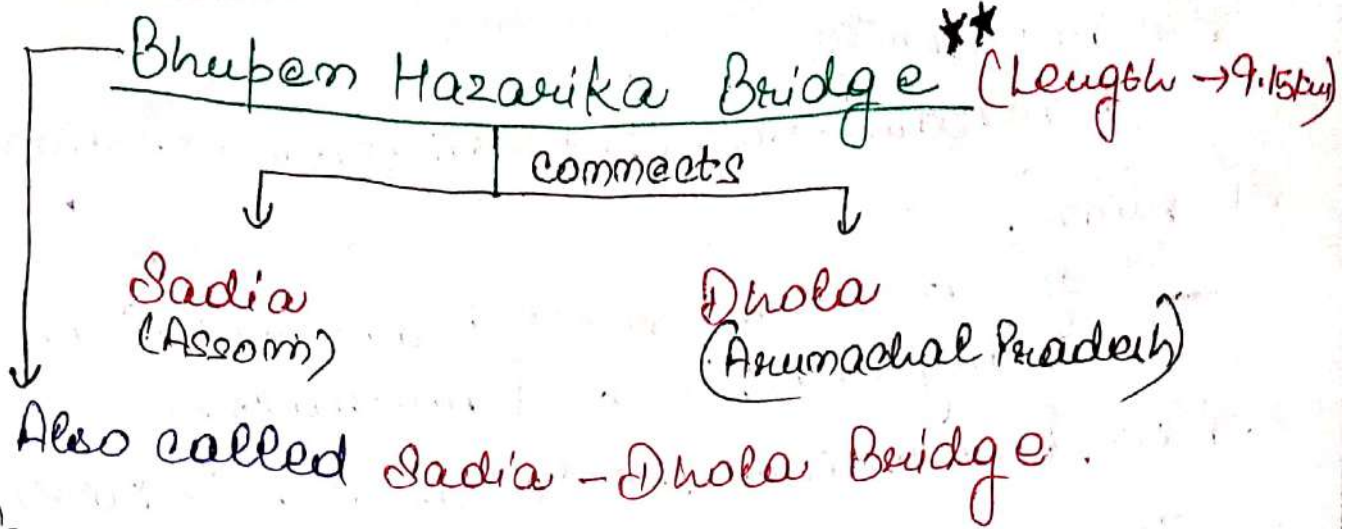 Bhupen Hazarika Bridge ** (Length → 9.15km)
connects
Sadia Dhola
(Assom) (Arunachal Pradesh)
Also called Sadia - Dhola Bridge.